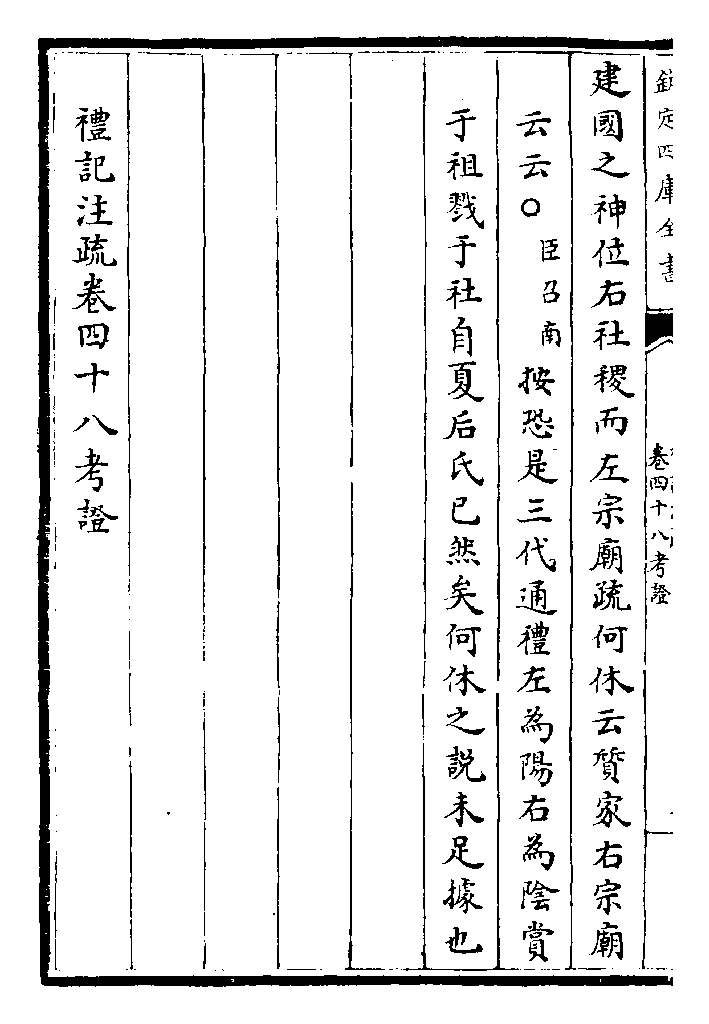 欽定四庫全書
卷四十八考證
建國之神位右社稷而左宗廟疏何休云質家右宗廟
云云○臣召南按恐是三代通禮左為陽右為陰賞
于祖戮于社自夏后氏已然矣何休之説未足據也
禮記注疏卷四十八考證